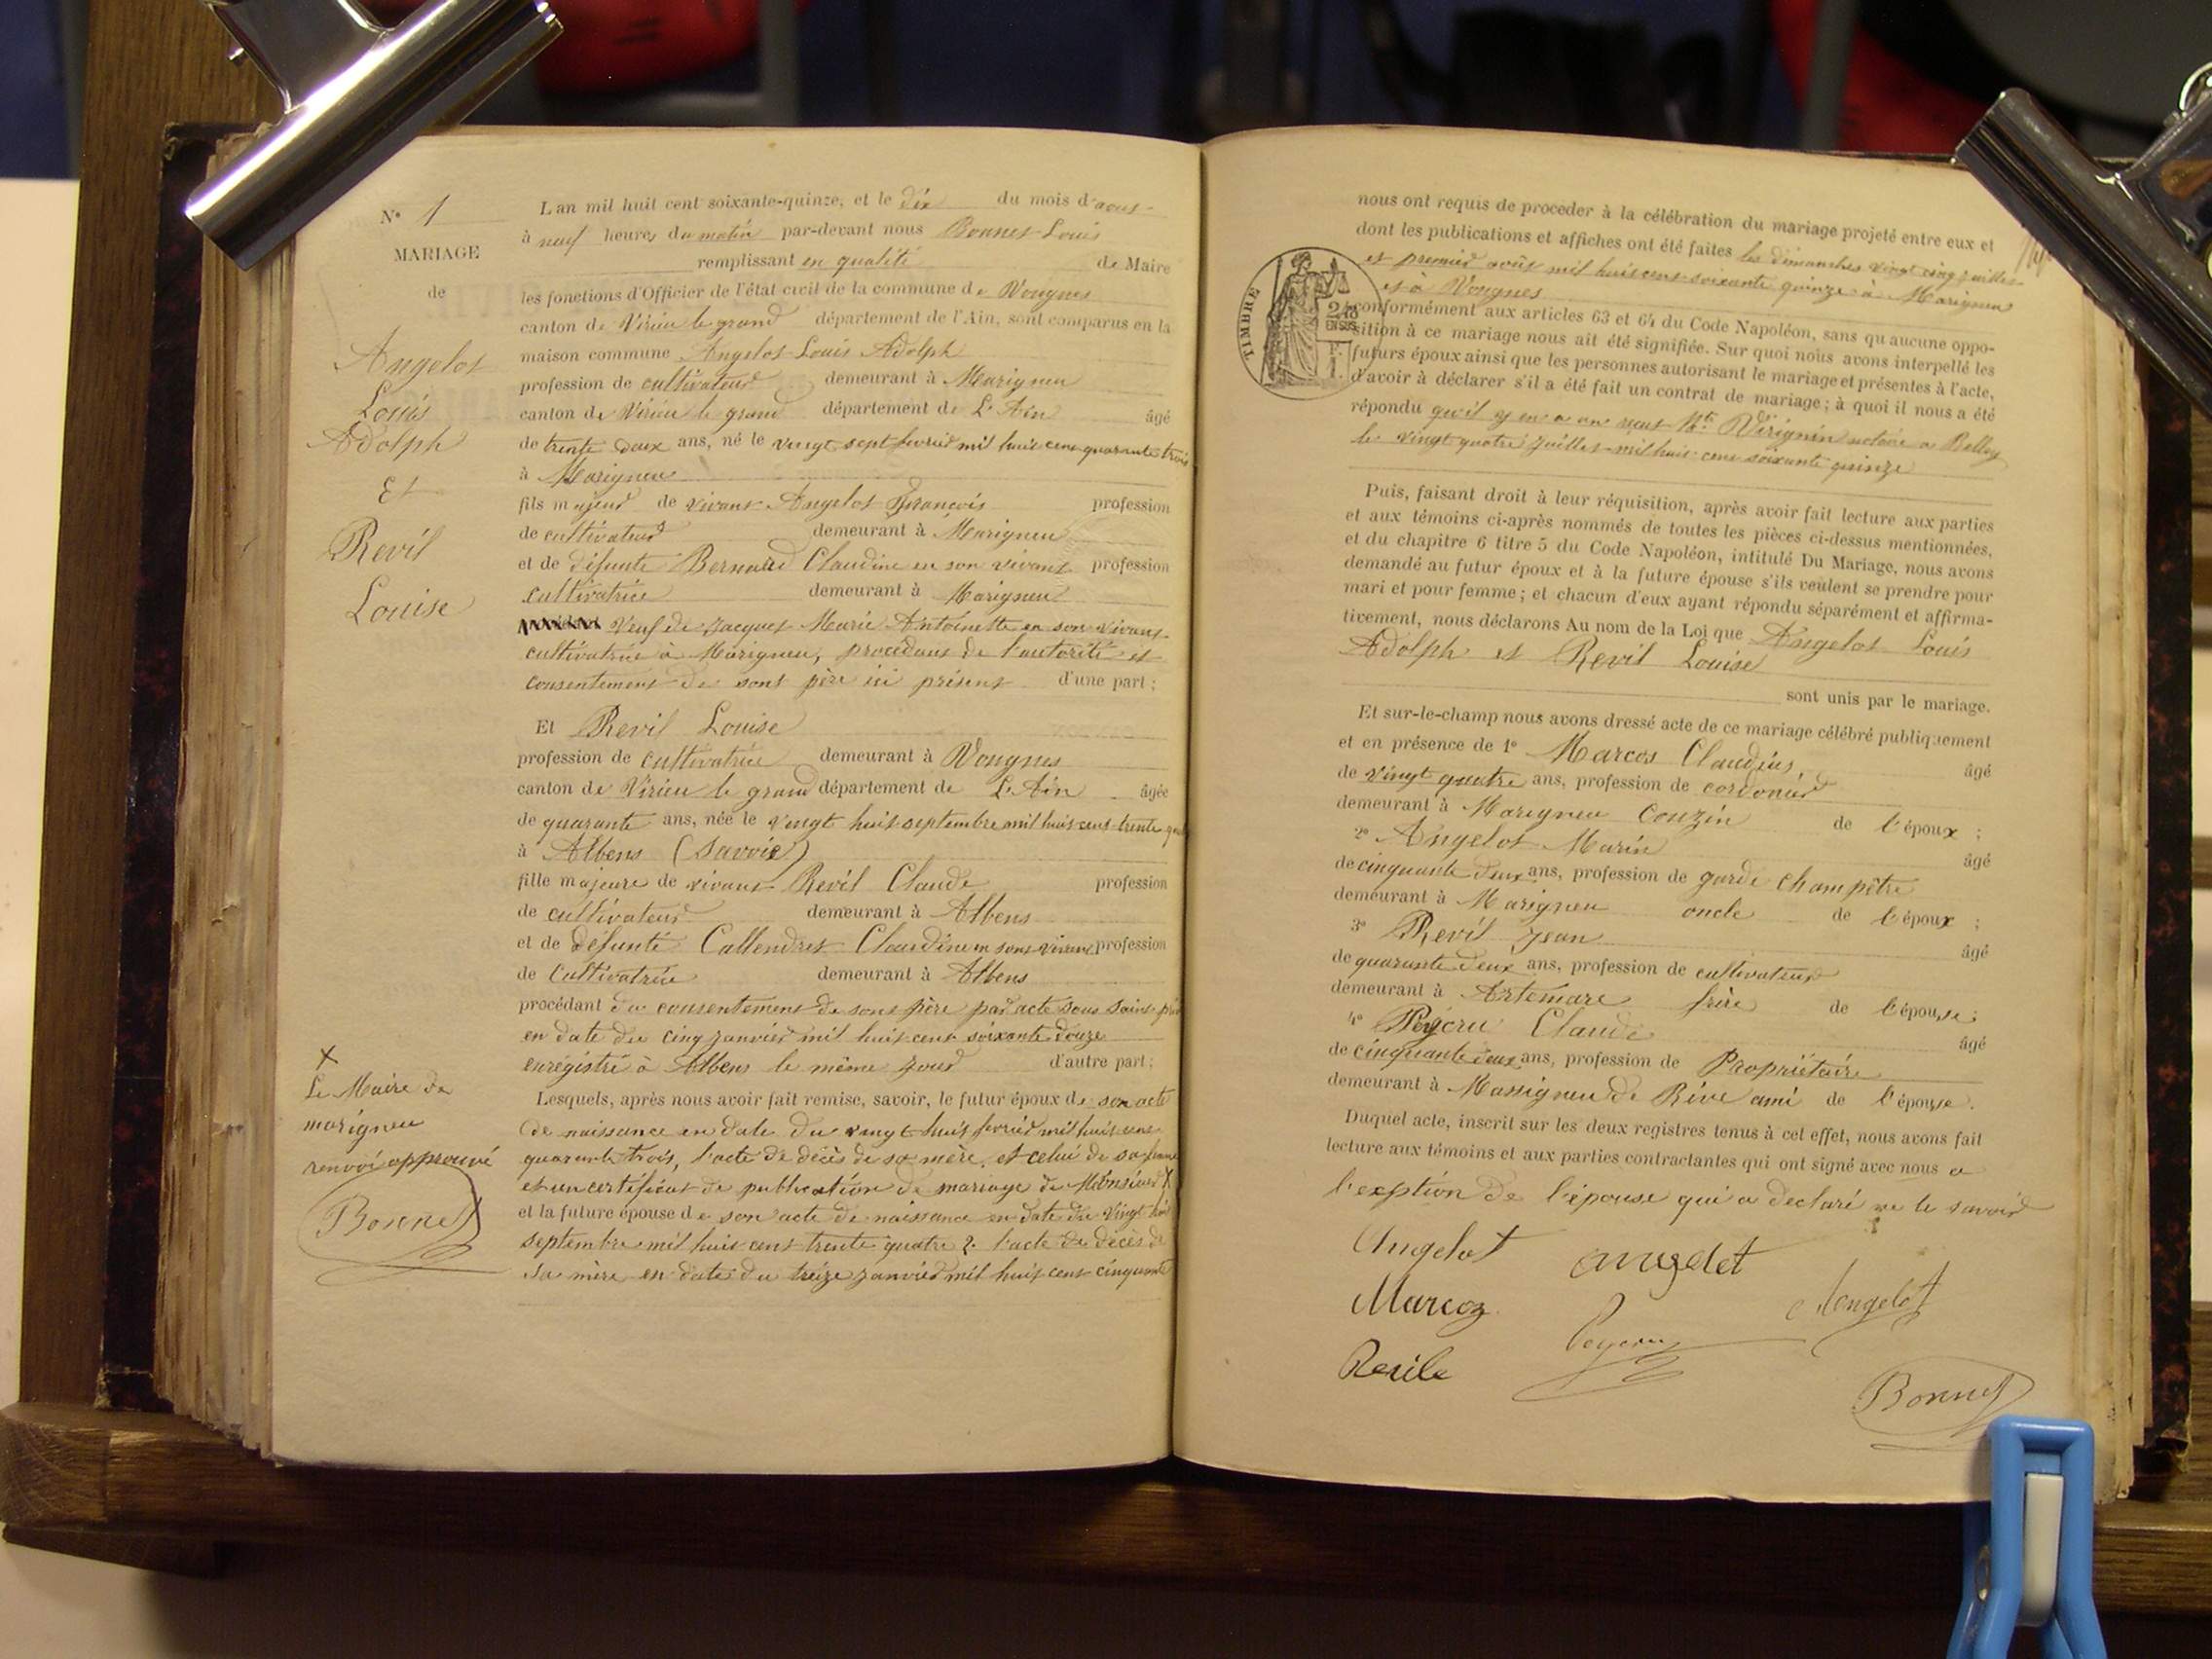 N° 1
MARIAGE
de
Angelot
Louis
Adolph
Et
Revil
Louise
L'an mil huit cent soixante-quinze, et le dix du mois d'aout
à neuf heures du matin par-devant nous Bonnet Louis
remplissant en qualité de Maire
les fonctions d'Officier de l'état civil de la commune de Vongnes
canton de Virieu le grand département de l'Ain, sont comparus en la
maison commune Angelot Louis Adolph
profession de cultivateur demeurant à Marigneu
canton de Virieu le grand département de L'Ain âgé
de trente deux ans, né le vingt sept fevrier mil huit cent quarante trois
à Marigneu
fils majeur de vivant Angelot François profession
de cultivateur demeurant à Marigneu
et de défunte Bernard Claudine en son vivant profession
cultivatrice demeurant à Marigneu
Veuf de Jacquet Marie Antoinette en son vivant
cultivatrice à Marigneu, procédant de l'autorité et
consentement de sont père ici présent d'une part ;
Et Revil Louise
profession de cultivatrice demeurant à Vongnes
canton de Virieu le grand département de L'Ain âgée
de quarante ans, née le vingt huit septembre mil huit cent trente
à Albens (Savoie)
fille majeure de vivant Revil Claude profession
de cultivateur demeurant à Albens
et de défunte Callendret Claudine en sont vivant profession
de Cultivatrice demeurant à Albens
procédant du consentement de sont père par acte sous saint
en date du cinq janvier mil huit cent soixante douze
enrégistré à Albens le même jour d'autre part ;
Lesquels, après nous avoir fait remise, savoir, le futur époux de son acte
de naissance en date du vingt huit fevrier mil huit cent
quarante trois, l'acte de décès de sa mère, et celui de sa femme
et un certificat de publication de mariage de Monsieur X
et la future épouse de son acte de naissance en date du vingt huit
septembre mil huit cent trente quatre 2. l'acte de décès de
sa mère en date du treize janvier mil huit cent cinquante
X
Le Maire de
marigneu
renvoi approuvé
Bonnet
nous ont requis de procéder à la célébration du mariage projeté entre eux et
dont les publications et affiches ont été faites les dimanches vingt cinq juillet
et premier août mil huit cent soixante quinze à Marigneu
et à Vongnes
TIMBRE
EN SUS
conformément aux articles 63 et 64 du Code Napoléon, sans qu'aucune oppo-
sition à ce mariage nous ait été signifiée. Sur quoi nous avons interpellé les
futurs époux ainsi que les personnes autorisant le mariage et présentes à l'acte,
d'avoir à déclarer s'il a été fait un contrat de mariage ; à quoi il nous a été
répondu qu'il y en a un reçut Me Virignin notaire a Belley
le vingt quatre Juillet mil huit cent soixante quinze
Puis, faisant droit à leur réquisition, après avoir fait lecture aux parties
et aux témoins ci-après nommés de toutes les pièces ci-dessus mentionnées,
et du chapitre 6 titre 5 du Code Napoléon, intitulé Du Mariage, nous avons
demandé au futur époux et à la future épouse s'ils veulent se prendre pour
mari et pour femme ; et chacun d'eux ayant répondu séparément et affirma-
tivement, nous déclarons Au nom de la Loi que Angelot Louis
Adolph et Revil Louise
sont unis par le mariage.
Et sur-le-champ nous avons dressé acte de ce mariage célébré publiquement
et en présence de 1° Marcos Claudius âgé
de vingt quatre ans, profession de cordonier
demeurant à Marigneu Couzin de l'époux ;
2° Angelot Marin âgé
de cinquante deux ans, profession de garde champêtre
demeurant à Marigneu oncle de l'époux ;
3° Revil Jean âgé
de quarante deux ans, profession de cultivateur
demeurant à Artemare frère de l'épouse ;
4° Peyeru Claude âgé
de cinquante deux ans, profession de Propriétaire
demeurant à Massigneu de Rive ami de l'épouse.
Duquel acte, inscrit sur les deux registres tenus à cet effet, nous avons fait
lecture aux témoins et aux parties contractantes qui ont signé avec nous a
l'exption de l'épouse qui a declaré ne le savoir
Angelot angelot
Marcoz Angelot
Peyeru
Revile
Bonnet